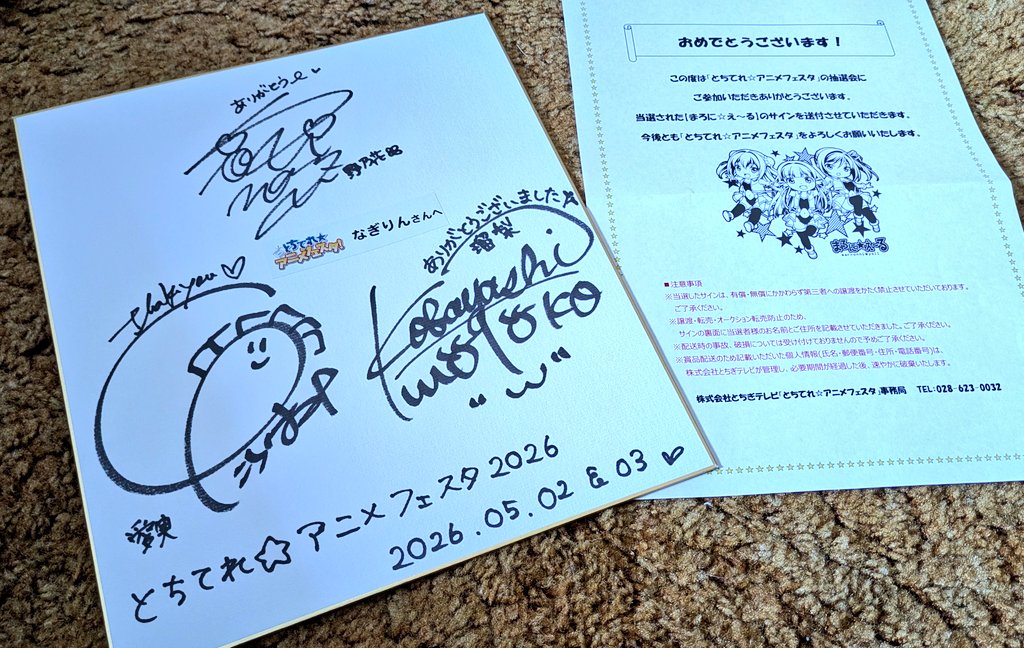 ありがとう
とちてれ☆
アニメフェスタ!
なぎりんさんへ
ありがとうございました☆
瑠梨
Thank you ♡
Kobayashi
愛実
とちてれ☆アニメフェスタ2026
2026.05.02 & 03 ♡
おめでとうございます!
この度は「とちてれ☆アニメフェスタ」の抽選会に
ご参加いただきありがとうございます。
当選された【まろに☆え~る】のサインを送付させていただきます。
今後とも「とちてれ☆アニメフェスタ」をよろしくお願いいたします。
まろに☆え~る
■注意事項
※当選したサインは、有償・無償にかかわらず第三者への譲渡をかたく禁止させていただいております。
ご了承ください。
※譲渡・転売・オークション転売防止のため、
サインの裏面に当選者様のお名前とご住所を記載させていただきました。ご了承ください。
※配送時の事故、破損については受け付けておりませんので予めご了承ください。
※賞品配送のため記載いただいた個人情報(氏名・郵便番号・住所・電話番号)は、
株式会社とちぎテレビが管理し、必要期間が経過した後、速やかに破棄いたします。
株式会社とちぎテレビ「とちてれ☆アニメフェスタ」事務局 TEL:028-623-0032